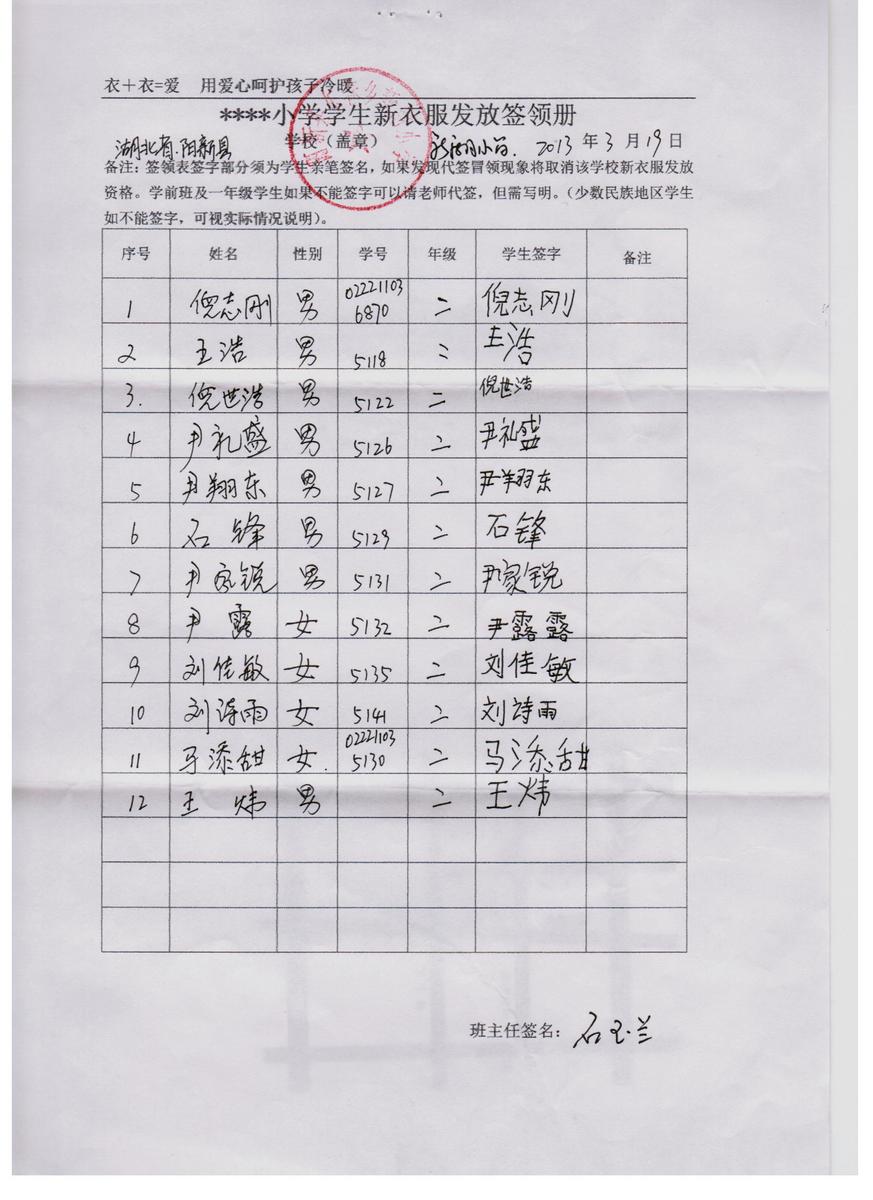 衣＋衣=爱 用爱心呵护孩子冷暖
****小学学生新衣服发放签领册
湖北省.阳新县 学校（盖章） 小学. 2013 年 3 月 19 日
备注：签领表签字部分须为学生亲笔签名，如果发现代签冒领现象将取消该学校新衣服发放
资格。学前班及一年级学生如果不能签字可以请老师代签，但需写明。（少数民族地区学生
如不能签字，可视实际情况说明）。
序号 姓名 性别 学号 年级 学生签字 备注
1 倪志刚 男 022211036870 二 倪志刚
2 王浩 男 5118 二 王浩
3. 倪世浩 男 5122 二 倪世浩
4 尹礼盛 男 5126 二 尹礼盛
5 尹翔东 男 5127 二 尹翔东
6 石锋 男 5129 二 石锋
7 尹家锐 男 5131 二 尹家锐
8 尹露 女 5132 二 尹露露
9 刘佳敏 女 5135 二 刘佳敏
10 刘诗雨 女 5141 二 刘诗雨
11 马添甜 女. 022211035130 二 马添甜
12 王炜 男 二 王炜
班主任签名： 石玉兰